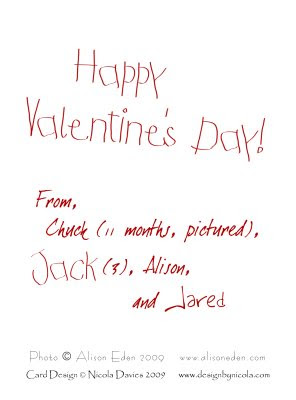 Happy
Valentine's Day!
From,
Chuck (11 months, pictured),
Jack (3), Alison,
and Jared
Photo © Alison Eden 2009 www.alisoneden.com
Card Design © Nicola Davies 2009 www.designbynicola.com